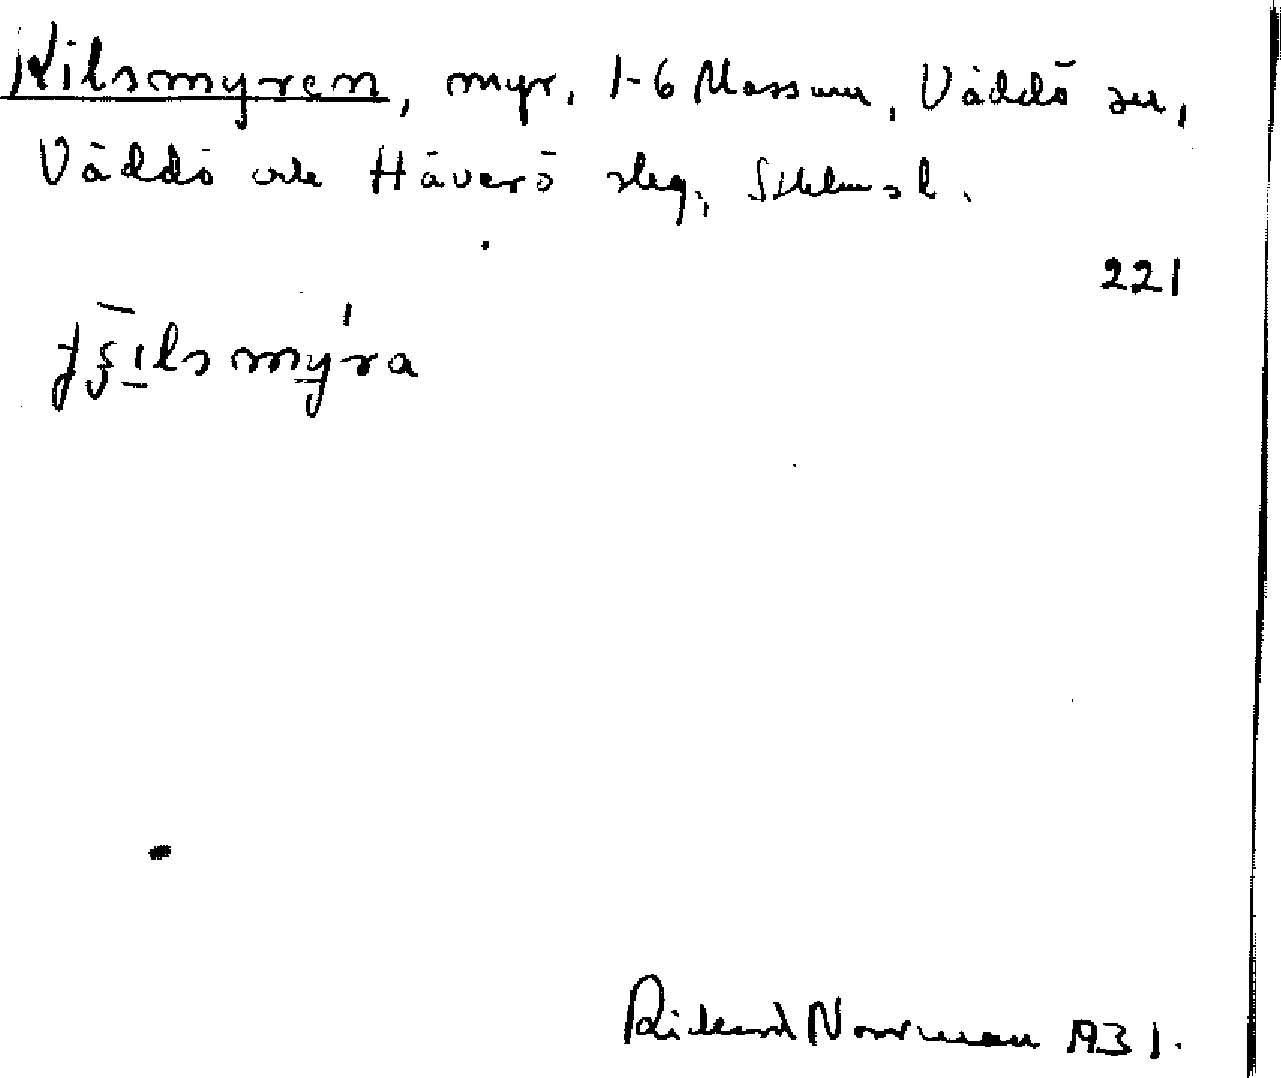 Kilsmyren, myr, 1-6 Massum, Väddö sn,
Väddö och Häverö slg, Sthlmsl.
221
Rikard Norrman 1931.